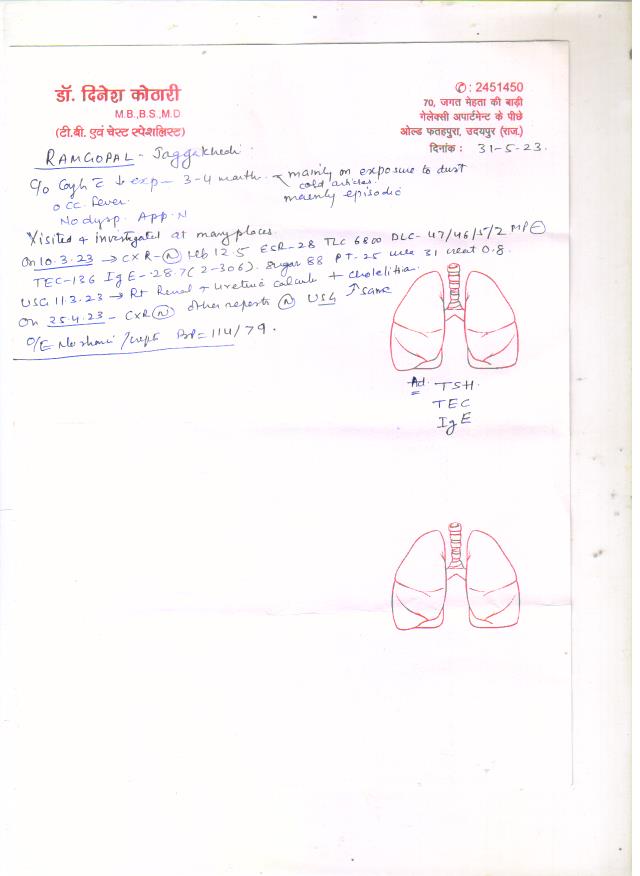 डॉ. दिनेश कोठारी
M.B.,B.S.,M.D
(टी.बी. एवं चेस्ट स्पेशलिस्ट)
✆: 2451450
70, जगत मेहता की बाड़ी
गेलेक्सी अपार्टमेन्ट के पीछे
ओल्ड फतहपुरा, उदयपुर (राज.)
दिनांक : 31-5-23.
RAMGOPAL - Jaggakhedi
C/o Cough c̄ ↓ exp - 3-4 month. mainly on exposure to dust
cold articles.
mainly episodic
occ. fever.
No dysp. App. N
Visited & investigated at many places.
On 10.3.23 → CXR-Ⓝ Hb 12.5 ESR-28 TLC 6800 DLC-47/46/5/2 MP⊖
TEC-136 IgE-28.7 (2-306). Sugar 88 PT-25 urea 31 creat 0.8.
USG 11.3.23 → Rt Renal + Ureteric calculi + cholelithia.
On 25.4.23 - CXR Ⓝ other reports Ⓝ USG ↑ same
O/E No rhonchi/crepts BP = 114/79.
Ad. TSH.
TEC
IgE